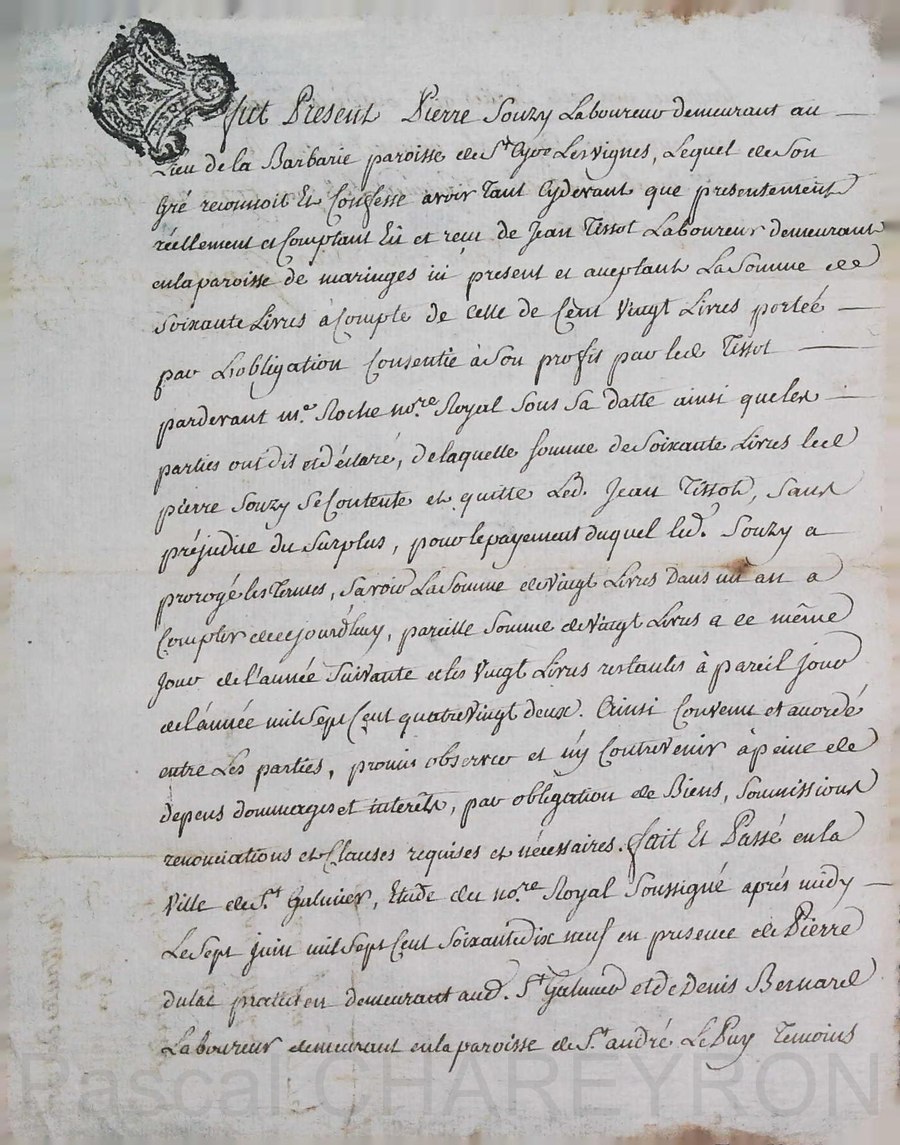 fut Present Pierre Souzy Laboureur demeurant au
Lieu de la Barbarie paroisse de St Cyr Les vignes, Lequel de Son
Gré reconnoit Et Confesse avoir Tant Cydevant que presentement
réellement et Comptant Eû et reçu de Jean Tissot Laboureur demeurant
en la paroisse de maringes ici present et aceptant La Somme de
Soixante Livres à Compte de Celle de Cent Vingt Livres portée
par L'obligation Consentie à Son profit par led Tissot
pardevant me. Roche nore. Royal Sous Sa datte ainsi que les
parties ont dit et déclaré, de laquelle Somme de Soixante Livres led
pierre Souzy Se Contente et quitte Led. Jean Tissot, Sans
préjudice du Surplus, pour le payement duquel led. Souzy a
prorogé les Termes, Savoir La Somme de Vingt Livres Dans un an a
Compter de ce jourd'huy, pareille Somme de Vingt Livres a ce même
jour de l'année Suivante et les Vingt Livres restantes à pareil jour
de l'année mil Sept Cent quatre vingt deux. Ainsi Convenu et acordé
entre Les parties, promis observer et n'y Contrevenir à peine de
depens dommages et interêts, par obligation de Biens, Soumissions
renonciations et Clauses requises et nécessaires. fait Et Passé en la
Ville de St. Galmier, Etude du nore. Royal Soussigné aprés midy
Le Sept juin mil Sept Cent Soixante Dix neuf en presence de Pierre
dulac praticien demeurant aud. St Galmier et de Denis Bernard
Laboureur demeurant en la paroisse de St. andré Le Puy Temoins
Pascal CHAREYRON